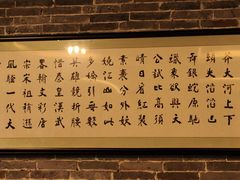 莽大河上下
頓失滔滔山
舞銀蛇原馳
蠟象欲與天
公試比高須
晴日看紅裝
素裹分外妖
嬈江山如此
多嬌引無數
英雄競折腰
惜秦皇漢武
略輸文彩唐
宗宋祖稍遜
風騷一代天